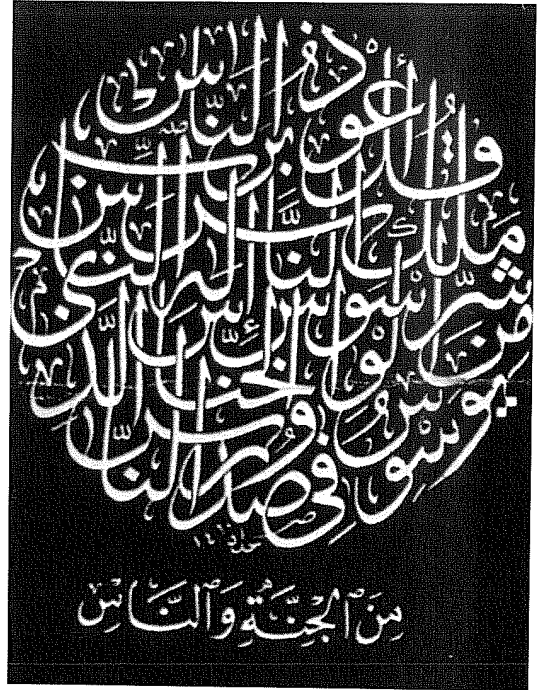 قُلْ أَعُوذُ بِرَبِّ النَّاسِ
مَلِكِ النَّاسِ
إِلَٰهِ النَّاسِ
مِن شَرِّ الْوَسْوَاسِ الْخَنَّاسِ
الَّذِي يُوَسْوِسُ فِي صُدُورِ النَّاسِ
مِنَ ٱلْجِنَّةِ وَٱلنَّاسِ